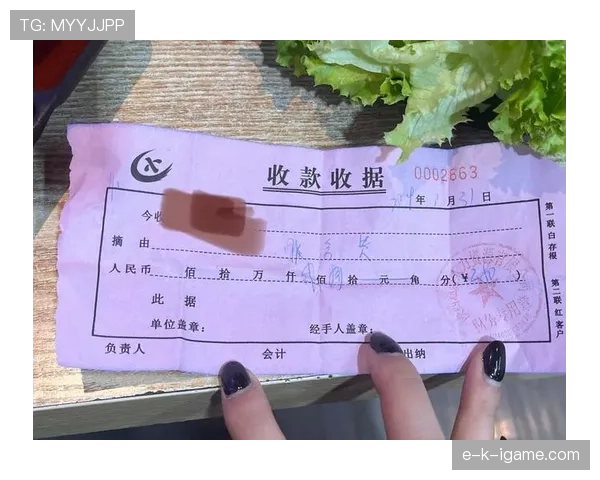 TG: MYYJJPP
收款收据
0002663
年 月 31 日
今收
摘由
人民币 佰 拾 万 仟 佰 拾 元 角 分(¥ )
此据
单位盖章: 经手人盖章:
负责人 会计 出纳
第一联白存根
第二联红客户
财务专用章
e-k-igame.com